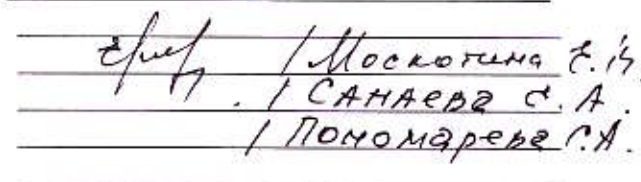 / Москотина Е.
/ САНАева С. А.
/ Пономарева С.А.